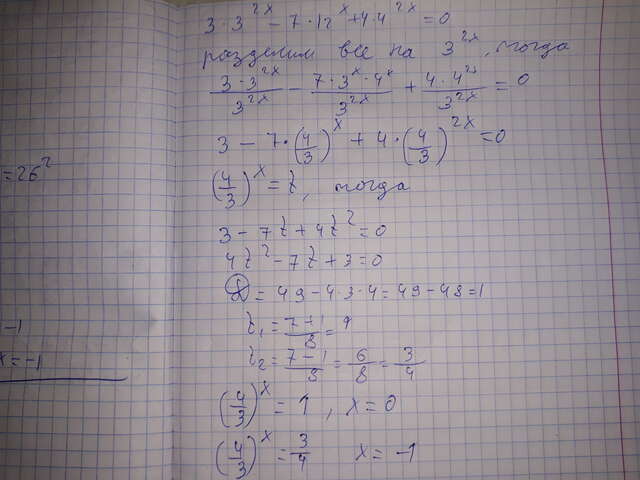 3·3^{2x} - 7·12^x + 4·4^{2x} = 0
разделим все на 3^{2x}, тогда
\frac{3·3^{2x}}{3^{2x}} - \frac{7·3^x·4^x}{3^{2x}} + \frac{4·4^{2x}}{3^{2x}} = 0
3 - 7·(\frac{4}{3})^x + 4·(\frac{4}{3})^{2x} = 0
(\frac{4}{3})^x = t, тогда
3 - 7t + 4t^2 = 0
4t^2 - 7t + 3 = 0
D = 49 - 4·3·4 = 49 - 48 = 1
t_1 = \frac{7+1}{8} = 1
t_2 = \frac{7-1}{8} = \frac{6}{8} = \frac{3}{4}
(\frac{4}{3})^x = 1, x = 0
(\frac{4}{3})^x = \frac{3}{4} x = -1
-1
x = -1